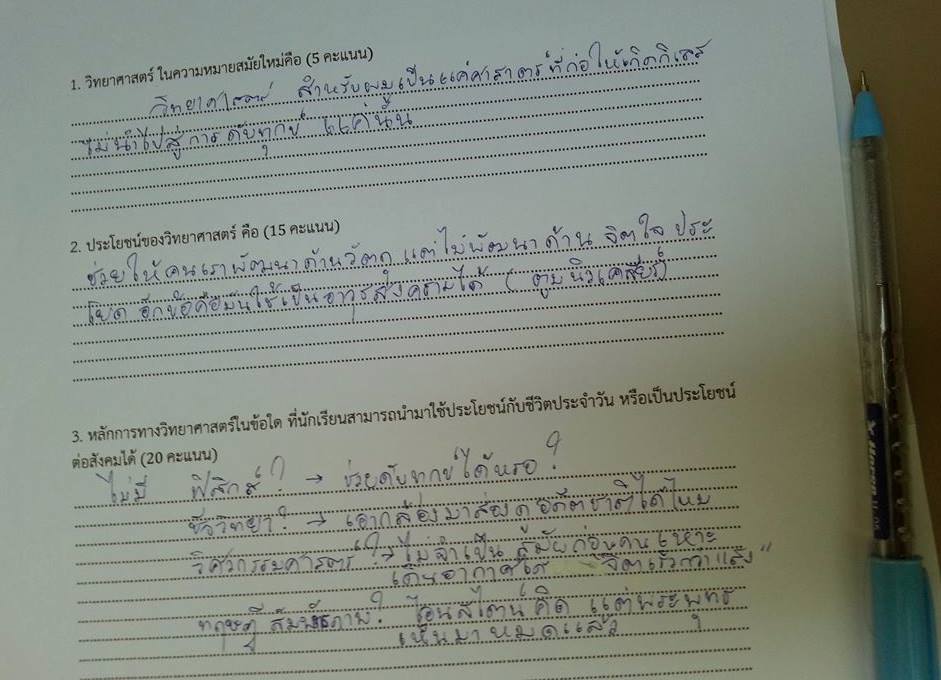 1. วิทยาศาสตร์ ในความหมายสมัยใหม่คือ (5 คะแนน)
วิทยาศาสตร์ สำหรับผมเป็นแค่ศาสตร์ที่ก่อให้เกิดกิเลส
ไม่นำไปสู่การดับทุกข์ แค่นั้น
2. ประโยชน์ของวิทยาศาสตร์ คือ (15 คะแนน)
ช่วยให้คนเราพัฒนาด้านวัตถุ แต่ไม่พัฒนาด้าน จิตใจ ประ
โยช อีกข้อคือมันใช้เป็นอาวุธสงครามได้ (ตูมนิวเคลียร์)
3. หลักการทางวิทยาศาสตร์ในข้อใด ที่นักเรียนสามารถนำมาใช้ประโยชน์กับชีวิตประจำวัน หรือเป็นประโยชน์
ต่อสังคมได้ (20 คะแนน)
ไม่มี ฟิสิกส์? → ช่วยดับทุกข์ได้หรอ?
ชีววิทยา? → เอากล้องมาส่องดูอดีตชาติได้ไหม
วิศวกรรมศาสตร์? → ไม่จำเป็น สมัยก่อนคนเหาะ
เดินอากาศได้ "จิตเร็วกว่าแสง"
ทฤษฎี สัมพัธภาพ? ไอนสไตน์คิด แต่พระพุทธ
เห็นมาหมดแล้ว